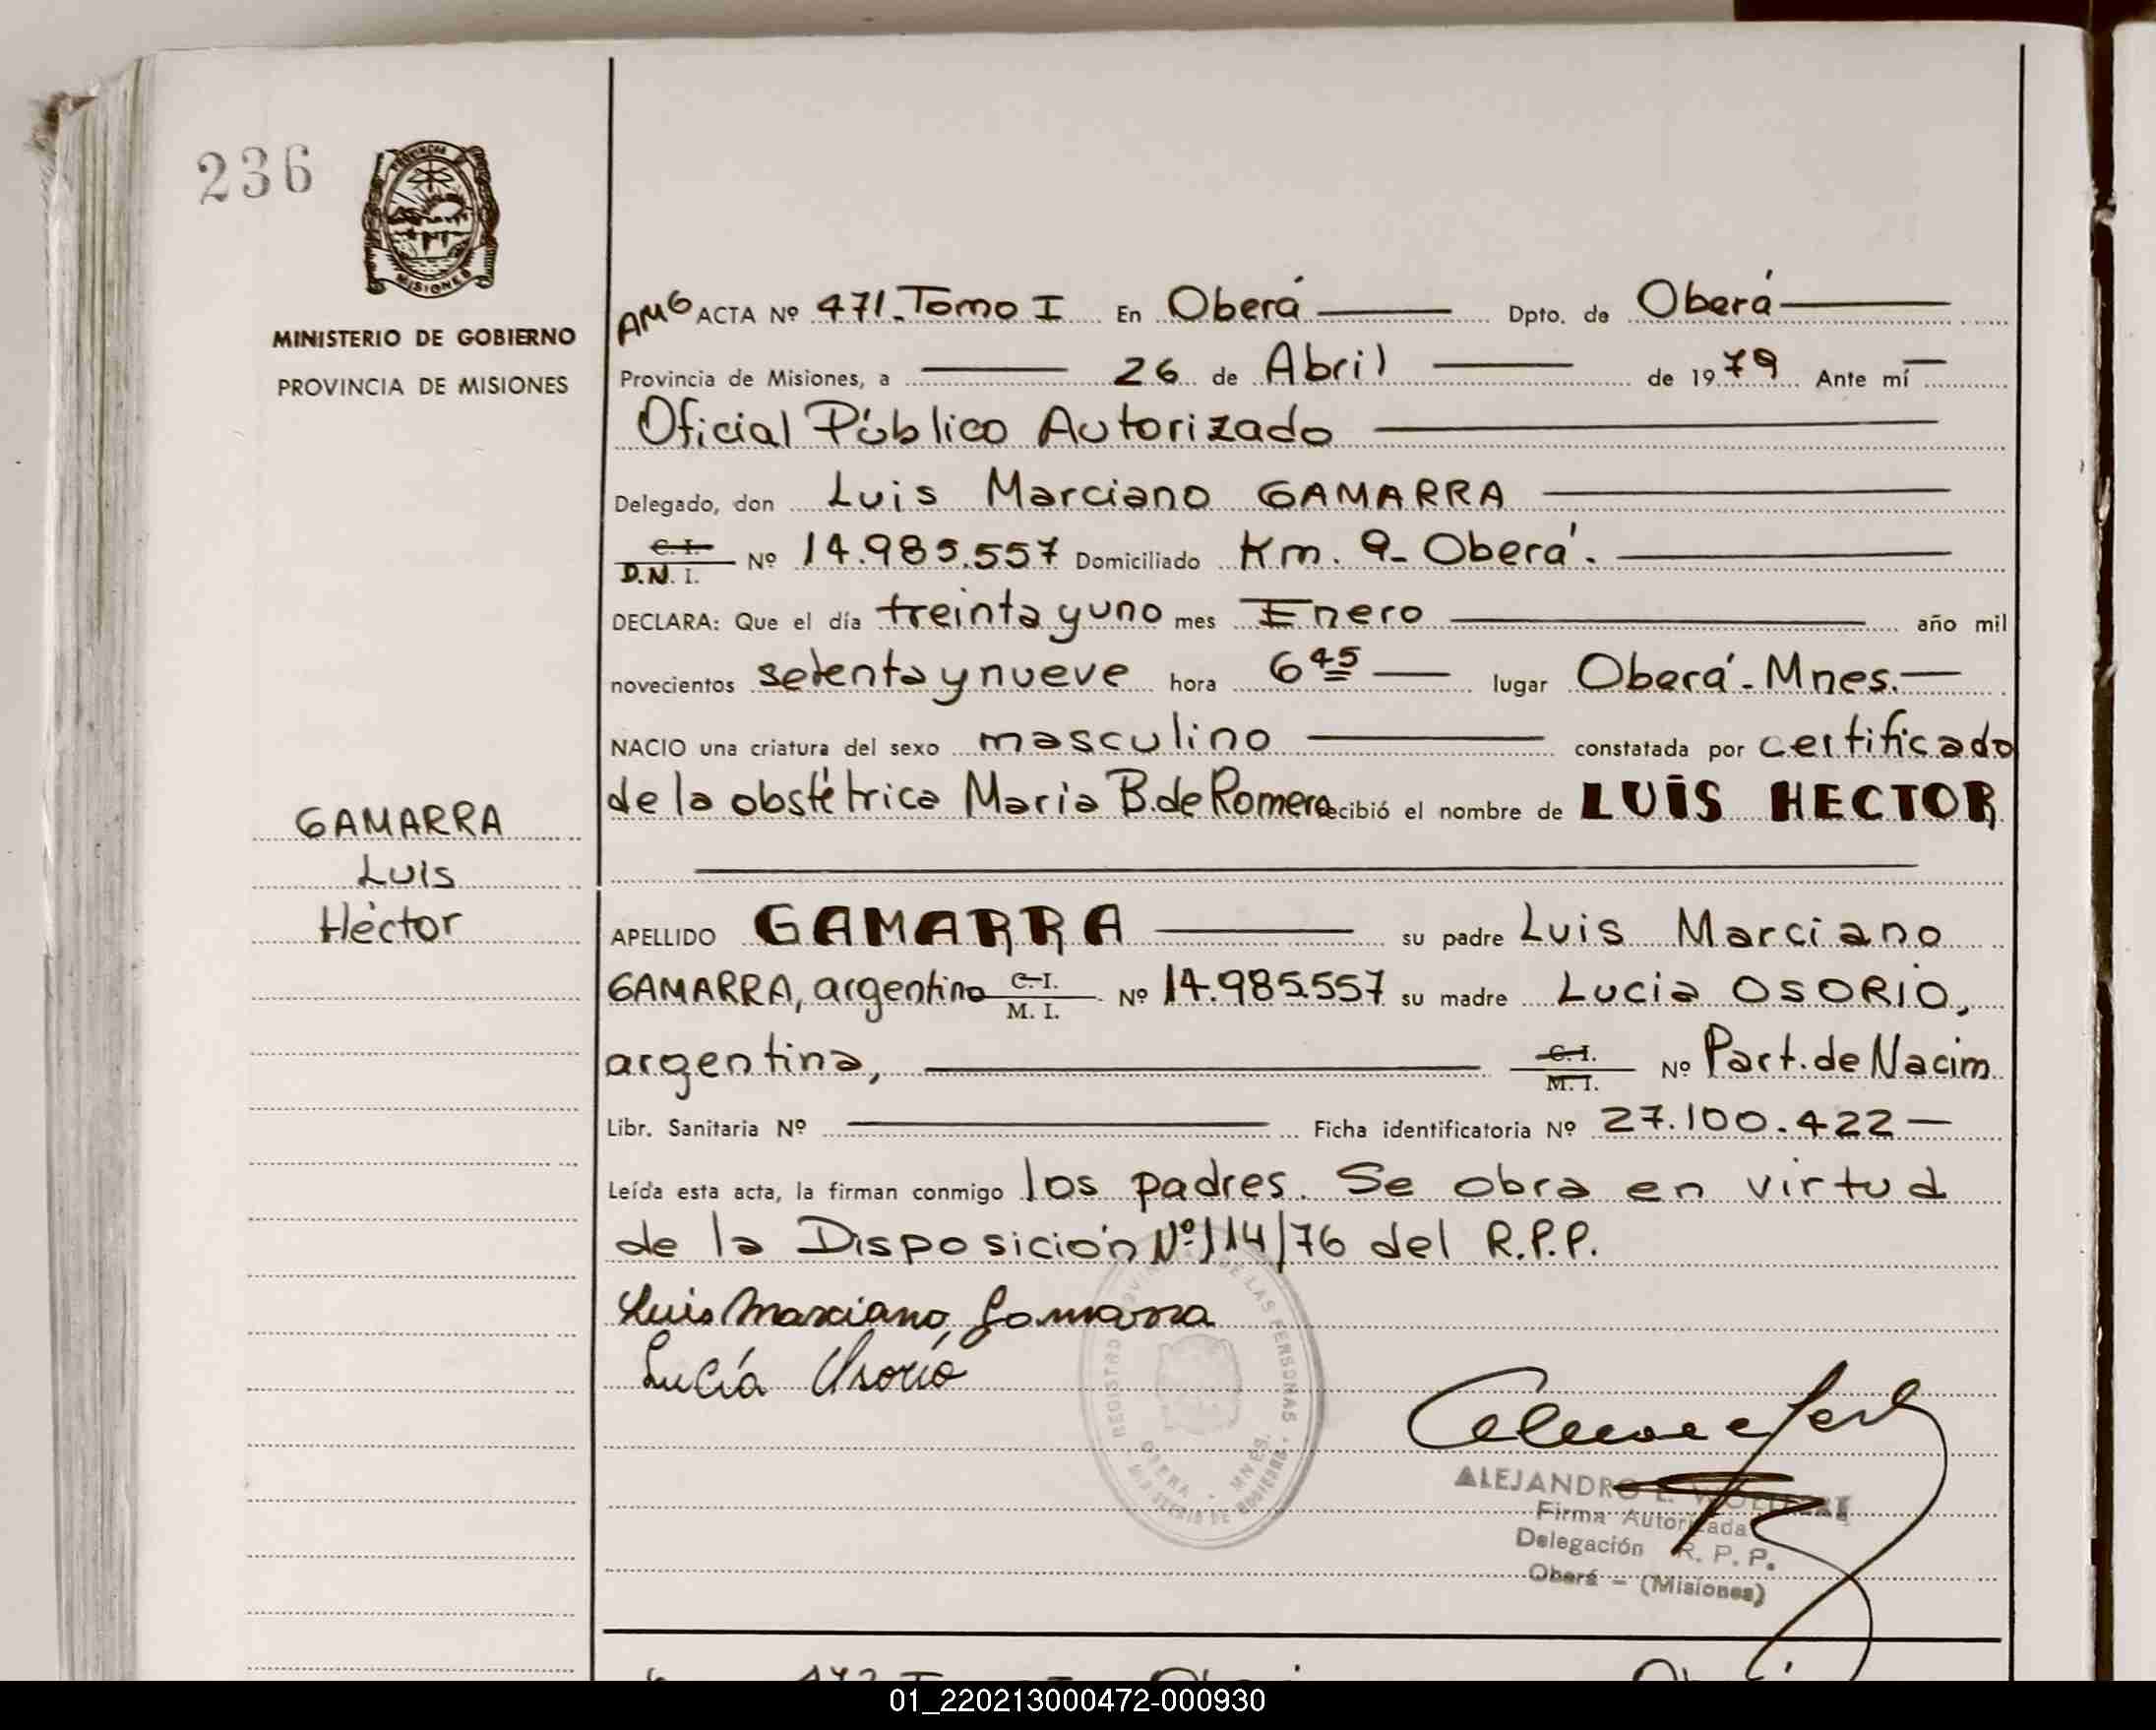 236
PROVINCIA DE
MISIONES
MINISTERIO DE GOBIERNO
PROVINCIA DE MISIONES
GAMARRA
Luis
Héctor
AMG ACTA Nº 471. Tomo I En Oberá Dpto. de Oberá
Provincia de Misiones, a 26 de Abril de 1979 Ante mí
Oficial Público Autorizado
Delegado, don Luis Marciano GAMARRA
C. I.
D.N. I. Nº 14.985.557 Domiciliado Km. 9- Oberá.
DECLARA: Que el día treinta y uno mes Enero año mil
novecientos setenta y nueve hora 6 45 lugar Oberá - Mnes.
NACIO una criatura del sexo masculino constatada por certificado
de la obstétrica Maria B. de Romero recibió el nombre de LUIS HECTOR
APELLIDO GAMARRA su padre Luis Marciano
GAMARRA, argentino C. I. M. I. Nº 14.985.557 su madre Lucia OSORIO,
argentina, C. I. M. I. Nº Part. de Nacim
Libr. Sanitaria Nº Ficha identificatoria Nº 27.100.422
Leída esta acta, la firman conmigo los padres. Se obra en virtud
de la Disposición Nº 114/76 del R.P.P.
Luis Marciano Gamarra
Lucía Osorio
REGISTRO DE LAS PERSONAS
OBERA - MNES.
MINISTERIO DE GOBIERNO
ALEJANDRO E.
Firma Autorizada
Delegación R. P. P.
Oberá - (Misiones)
01_220213000472-000930